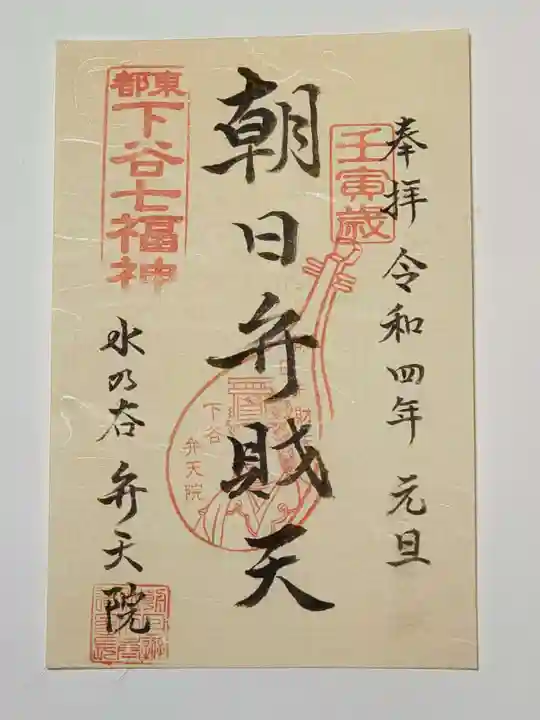 奉拝 令和四年 元旦
壬寅歳
朝日弁財天
下谷
弁天院
東都
下谷七福神
水の谷 弁天院